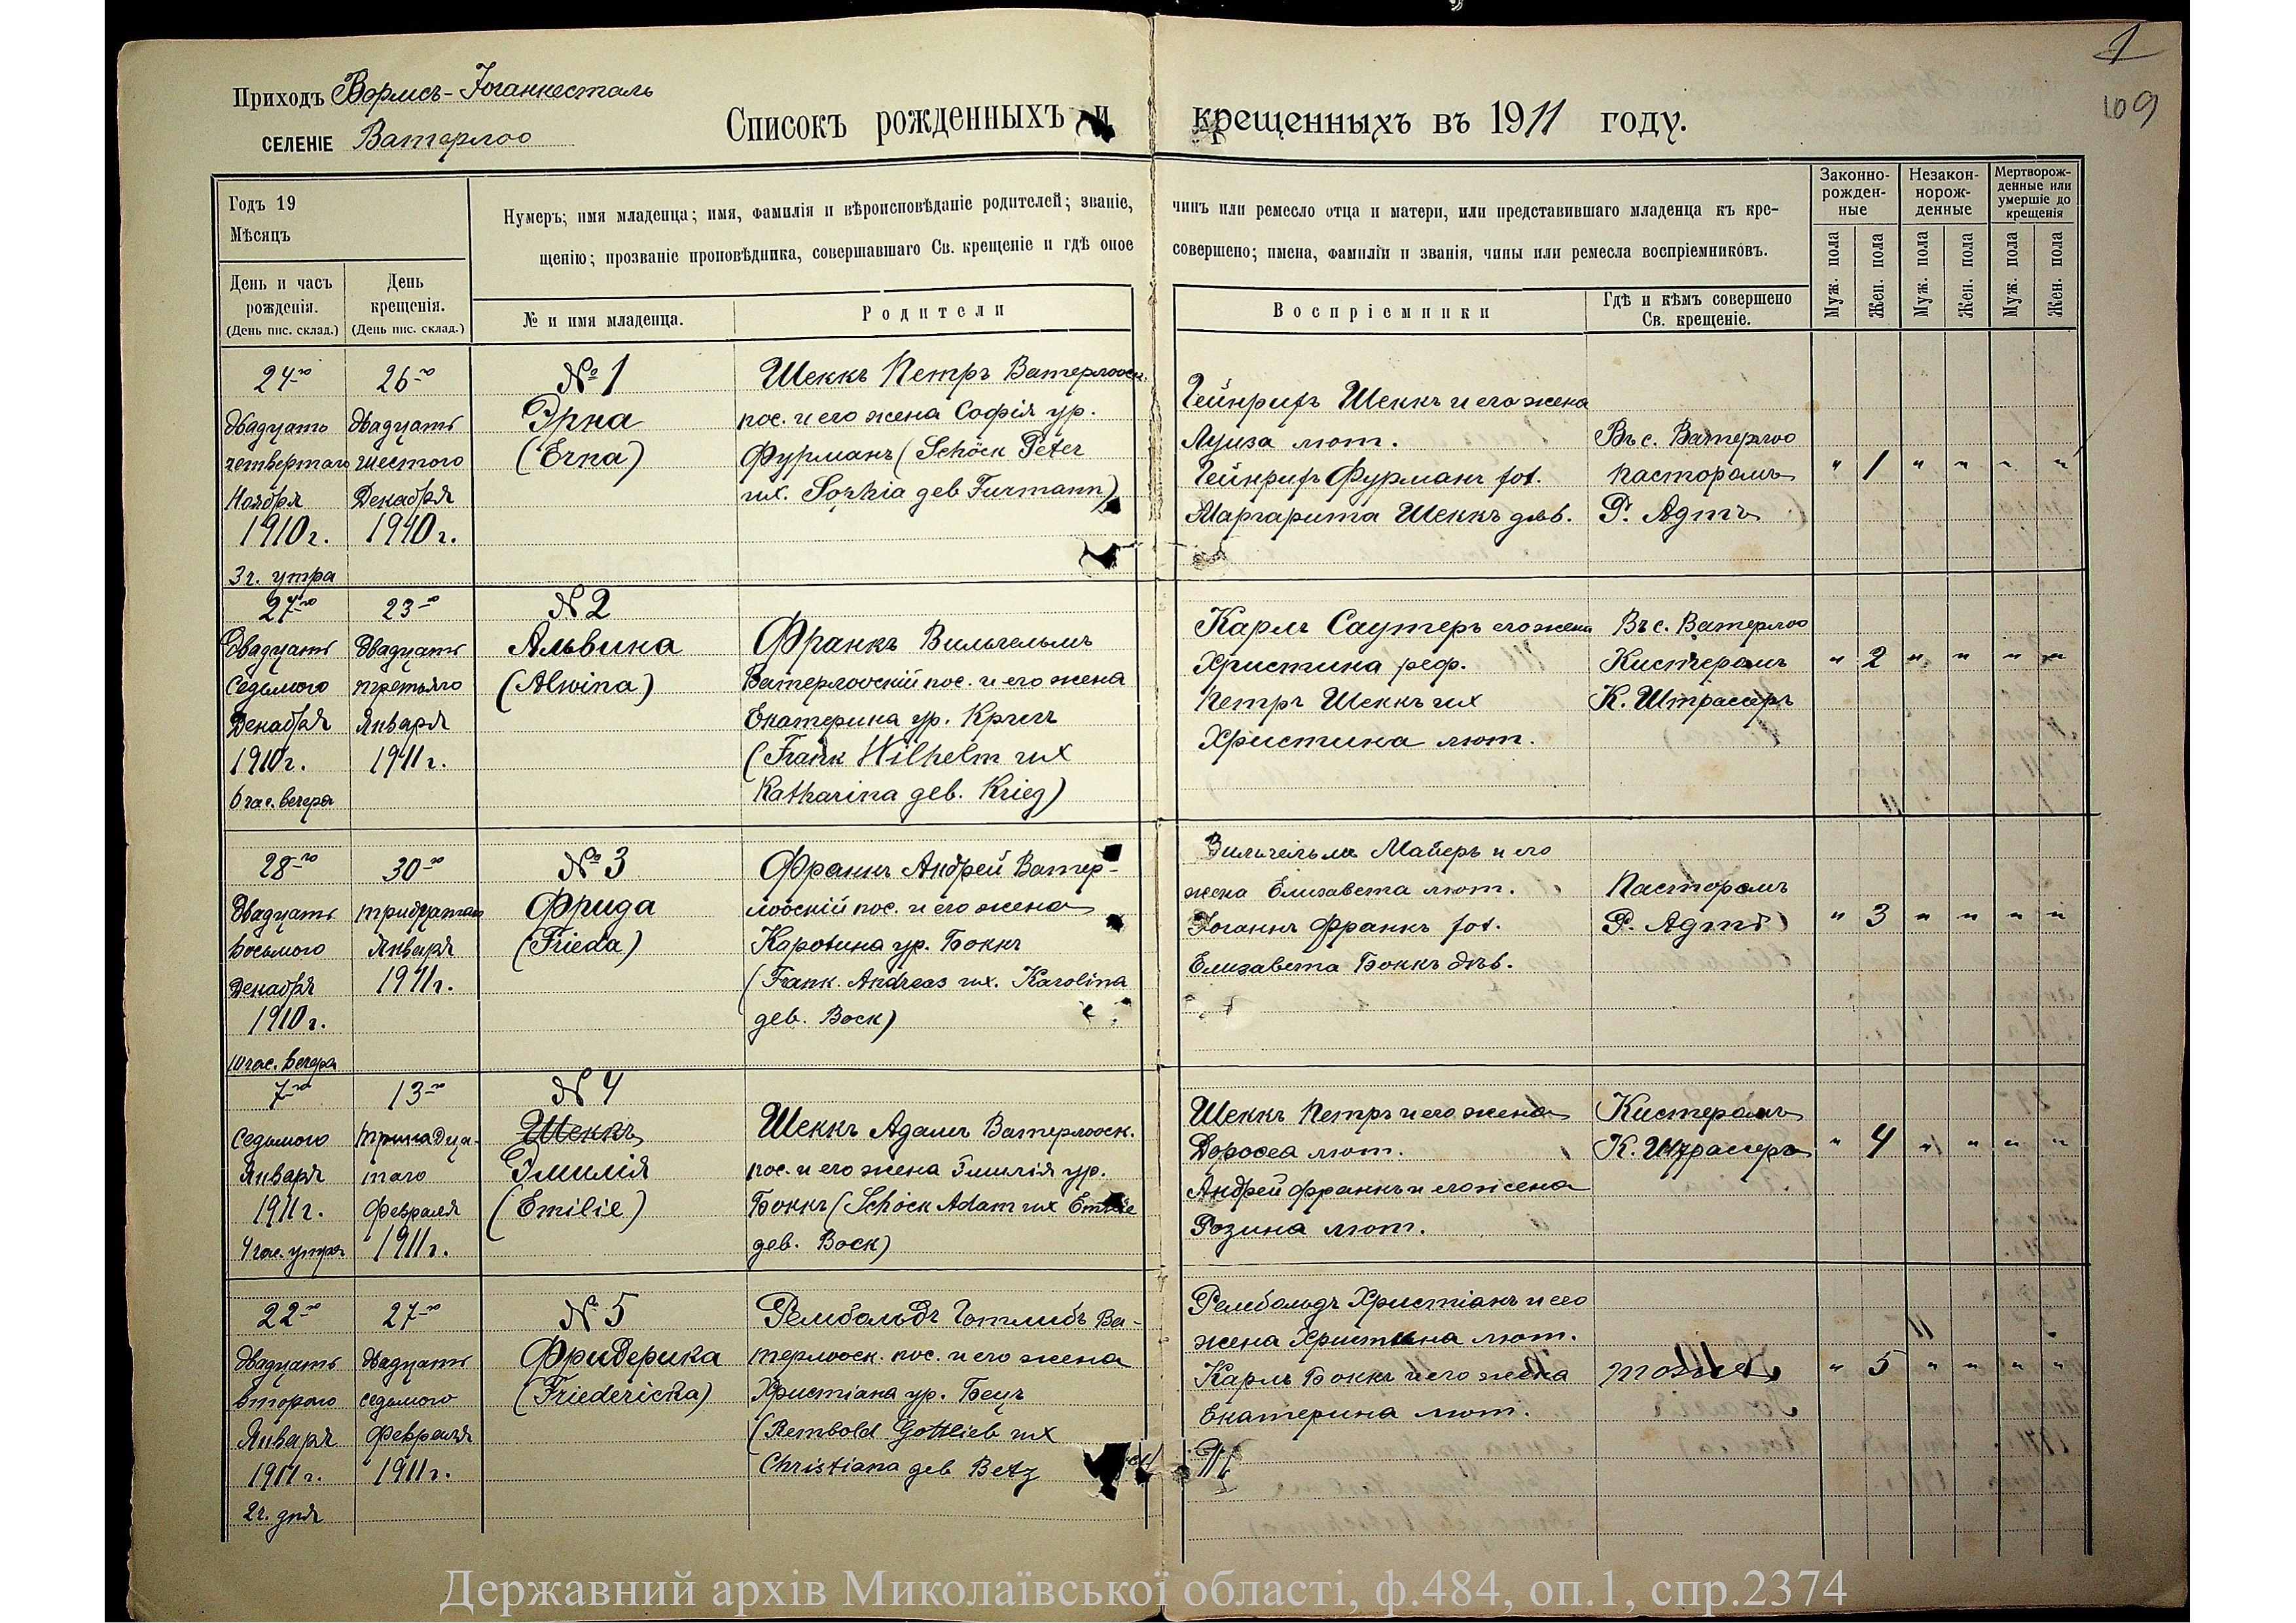 1
109
Приходъ Вормсъ-Іоганнесталь
СЕЛЕНІЕ Ватерлоо
Списокъ рожденныхъ и крещенныхъ въ 1911 году.
Годъ 19
Мѣсяцъ
День и часъ рожденія.
(День пис. склад.)
День крещенія.
(День пис. склад.)
Нумеръ; имя младенца; имя, фамилія и вѣроисповѣданіе родителей; званіе, чинъ или ремесло отца и матери, или представившаго младенца къ кре-
щенію; прозваніе проповѣдника, совершавшаго Св. крещеніе и гдѣ оное совершено; имена, фамиліи и званія, чины или ремесла воспріемниковъ.
№ и имя младенца.
Родители
Воспріемники
Гдѣ и кѣмъ совершено
Св. крещеніе.
Законно-
рожден-
ные
Незакон-
норож-
денные
Мертворож-
денные или
умершіе до
крещенія
Муж. пола
Жен. пола
Муж. пола
Жен. пола
Муж. пола
Жен. пола
24-го
двадцать
четвертаго
Ноября
1910 г.
3 ч. утра
26-го
двадцать
шестого
Декабря
1910 г.
№ 1
Эрна
(Erna)
Шеккъ Петръ Ватерлооск.
пос. и его жена Софія ур.
Фурманъ (Schöck Peter
их. Sophia geb Furmann)
Гейнрихъ Шеккъ и его жена
Луиза лют.
Гейнрихъ Фурманъ хол.
Маргарита Шеккъ дѣв.
Въ с. Ватерлоо
пасторомъ
Р. Адтъ
" 1 " " " "
27-го
Двадцать
седьмого
Декабря
1910 г.
6 час. вечера
23-го
Двадцать
третьяго
Января
1911 г.
№ 2
Альвина
(Alwina)
Франкъ Вильгельмъ
Ватерлоский пос. и его жена
Екатерина ур. Кригъ
(Frank Wilhelm их
Katharina geb. Krieg)
Карлъ Саутеръ его жена
Христина реф.
Петръ Шеккъ их
Христина лют.
Въ с. Ватерлоо
Кистеромъ
К. Штрассеръ
" 2 " " " "
28-го
Двадцать
восьмого
Декабря
1910 г.
10 час. вечера
30-го
тридцатаго
Января
1911 г.
№ 3
Фрида
(Frieda)
Франкъ Андрей Ватер-
лооскій пос. и его жена
Каролина ур. Боккъ
(Frank. Andreas их. Karolina
geb. Bock)
Вильгельмъ Майеръ и его
жена Елизавета лют.
Іоганнъ Франкъ хол.
Елизавета Боккъ дѣв.
Пасторомъ
Р. Адтъ
" 3 " " " "
7-го
седьмого
Января
1911 г.
4 час. утра
13-го
тринадца-
таго
Февраля
1911 г.
№ 4
Шеккъ
Эмилія
(Emilie)
Шеккъ Адамъ Ватерлооск.
пос. и его жена Эмилія ур.
Боккъ (Schöck Adam их Emilie
geb. Bock)
Шеккъ Петръ и его жена
Доротея лют.
Андрей Франкъ и его жена
Розина лют.
Кистеромъ
К. Штрассеръ
" 4 " " " "
22-го
двадцать
второго
Января
1911 г.
2 ч. дня
27-го
двадцать
седьмого
Февраля
1911 г.
№ 5
Фридерика
(Friedericka)
Рембольдъ Готлибъ Ва-
терлооск. пос. и его жена
Христіана ур. Бецъ
(Rembold Gottlieb их
Christiana geb Betz
Рембольдъ Христіанъ и его
жена Христина лют.
Карлъ Боккъ и его жена
Екатерина лют.
тоже
" 5 " " " "
Державний архів Миколаївської області, ф.484, оп.1, спр.2374